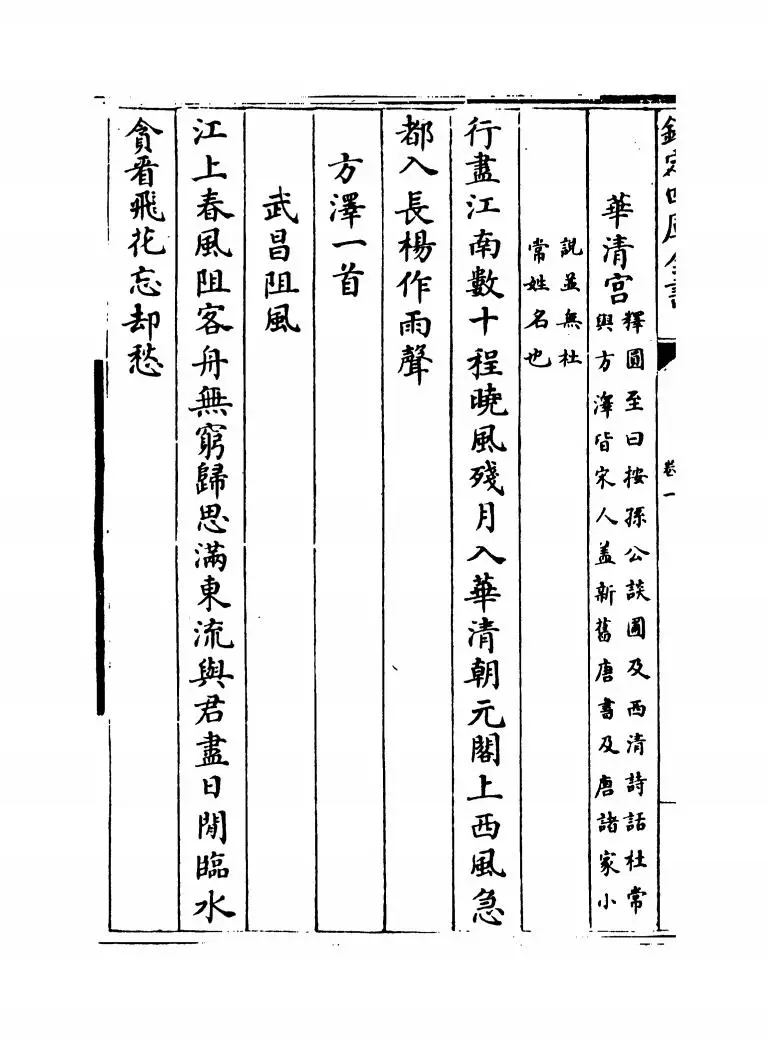 欽定四庫全書
卷一
華清宮釋圓至曰按孫公談圃及西清詩話杜常
與方澤皆宋人盖新舊唐書及唐諸家小
說並無杜
常姓名也
行盡江南數十程曉風殘月入華清朝元閣上西風急
都入長楊作雨聲
方澤一首
武昌阻風
江上春風阻客舟無窮歸思滿東流與君盡日閒臨水
貪看飛花忘却愁